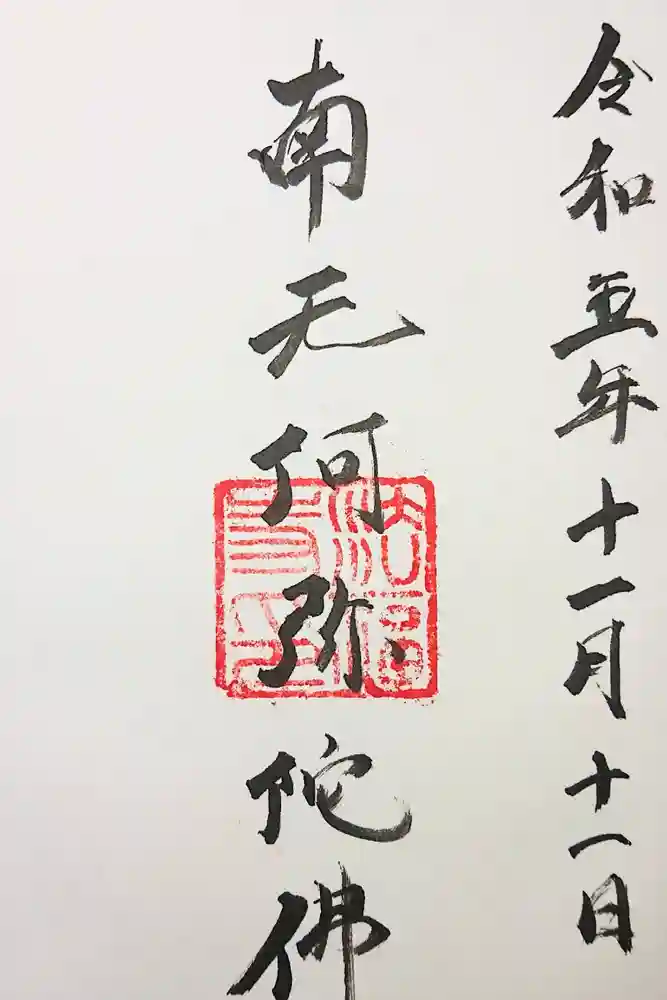 令和五年十一月十一日
南无阿弥陀佛